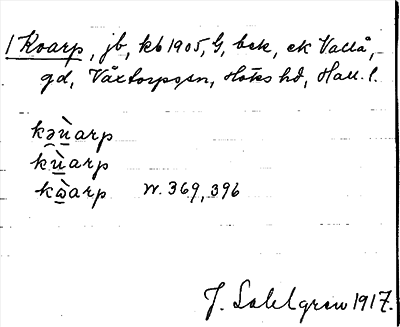 1 Kvarp, jb, kb 1905, G, bek, ek Vallå,
gd, Våxtorpsgsn, Höks hd, Hall. l.
kəù̯arp
kù̯arp
kὼ̯arp W. 369, 396
J. Sahlgren 1917.